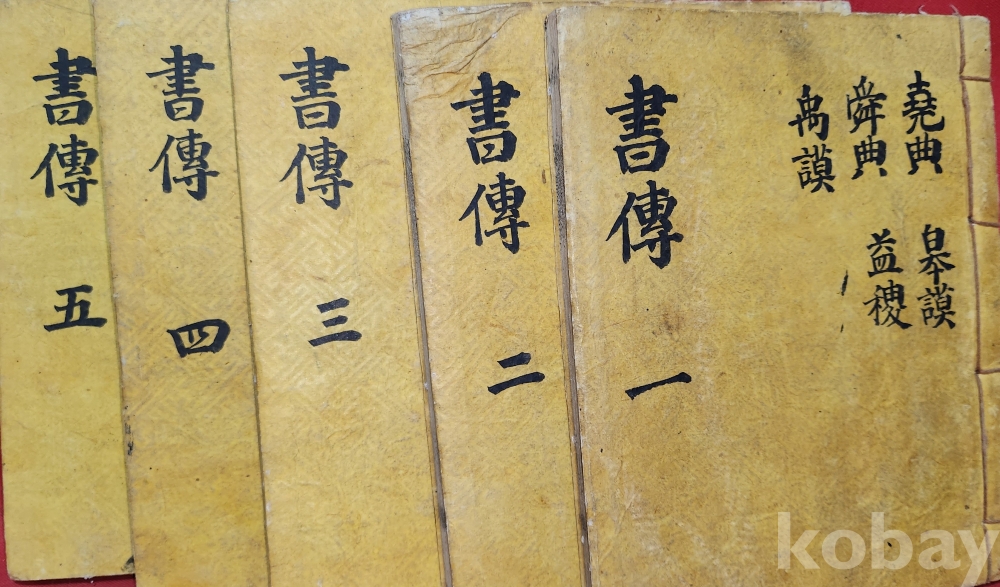 堯典 皋謨
舜典 益稷
禹謨
書傳 一
書傳 二
書傳 三
書傳 四
書傳 五
kobay